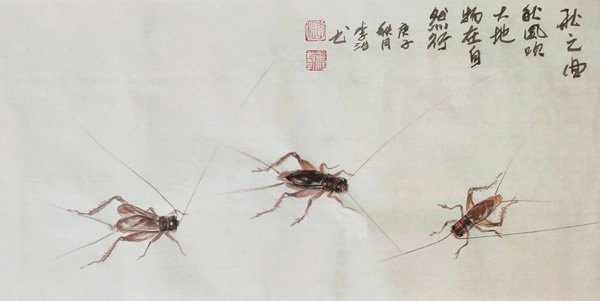 秋之曲
秋風吹
大地
物在自
然行
庚子
秋月
李
书